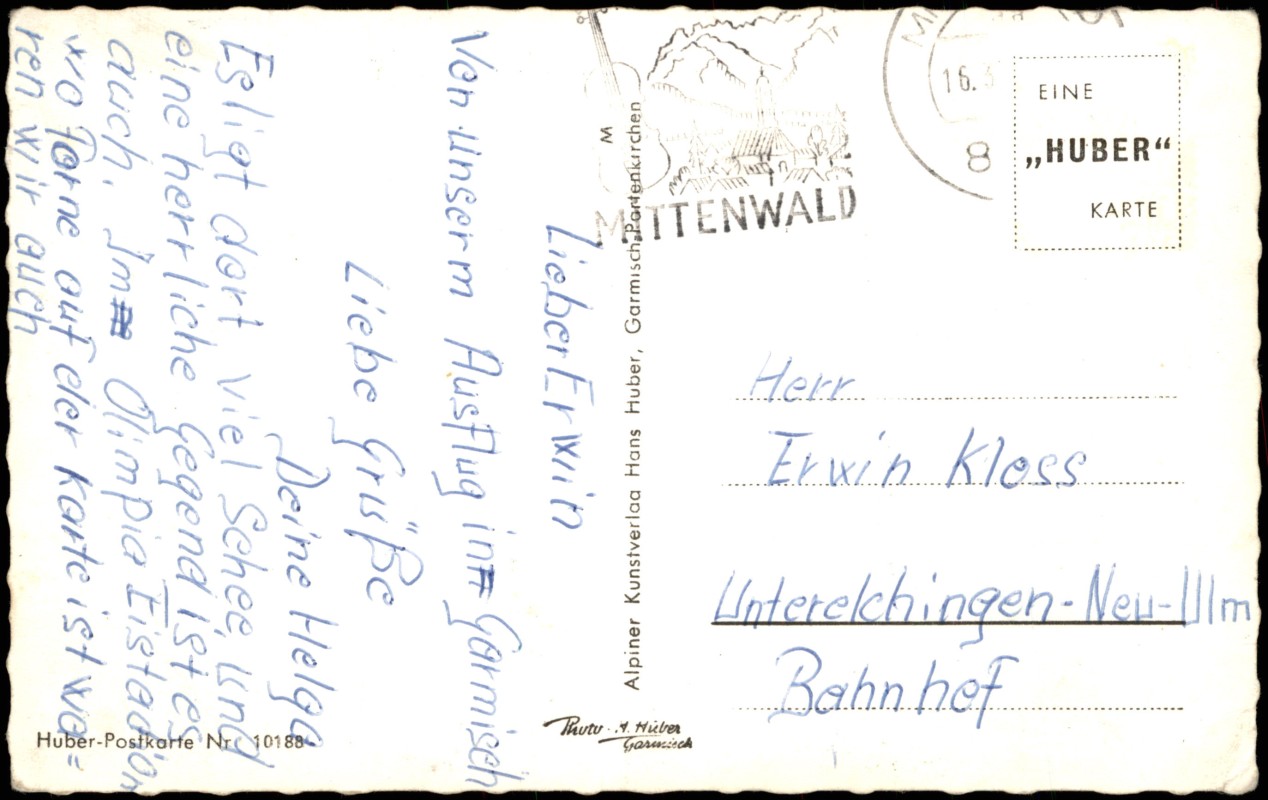 Lieber Erwin
Von unserm Ausflug in Garmisch
Liebe Grüße
Deine Helga
Es ligt dort viel Schee, und
eine herrliche Gegend ist es
auch. Im Olimpia Eistadion
wo forne auf der Karte ist wa=
ren wir auch
Huber-Postkarte Nr. 10188
Photo A. Huber
Garmisch
Alpiner Kunstverlag Hans Huber, Garmisch-Partenkirchen
M
MITTENWALD
16.
8
EINE
„HUBER“
KARTE
Herr
Erwin Kloss
Unterelchingen-Neu-Ulm
Bahnhof